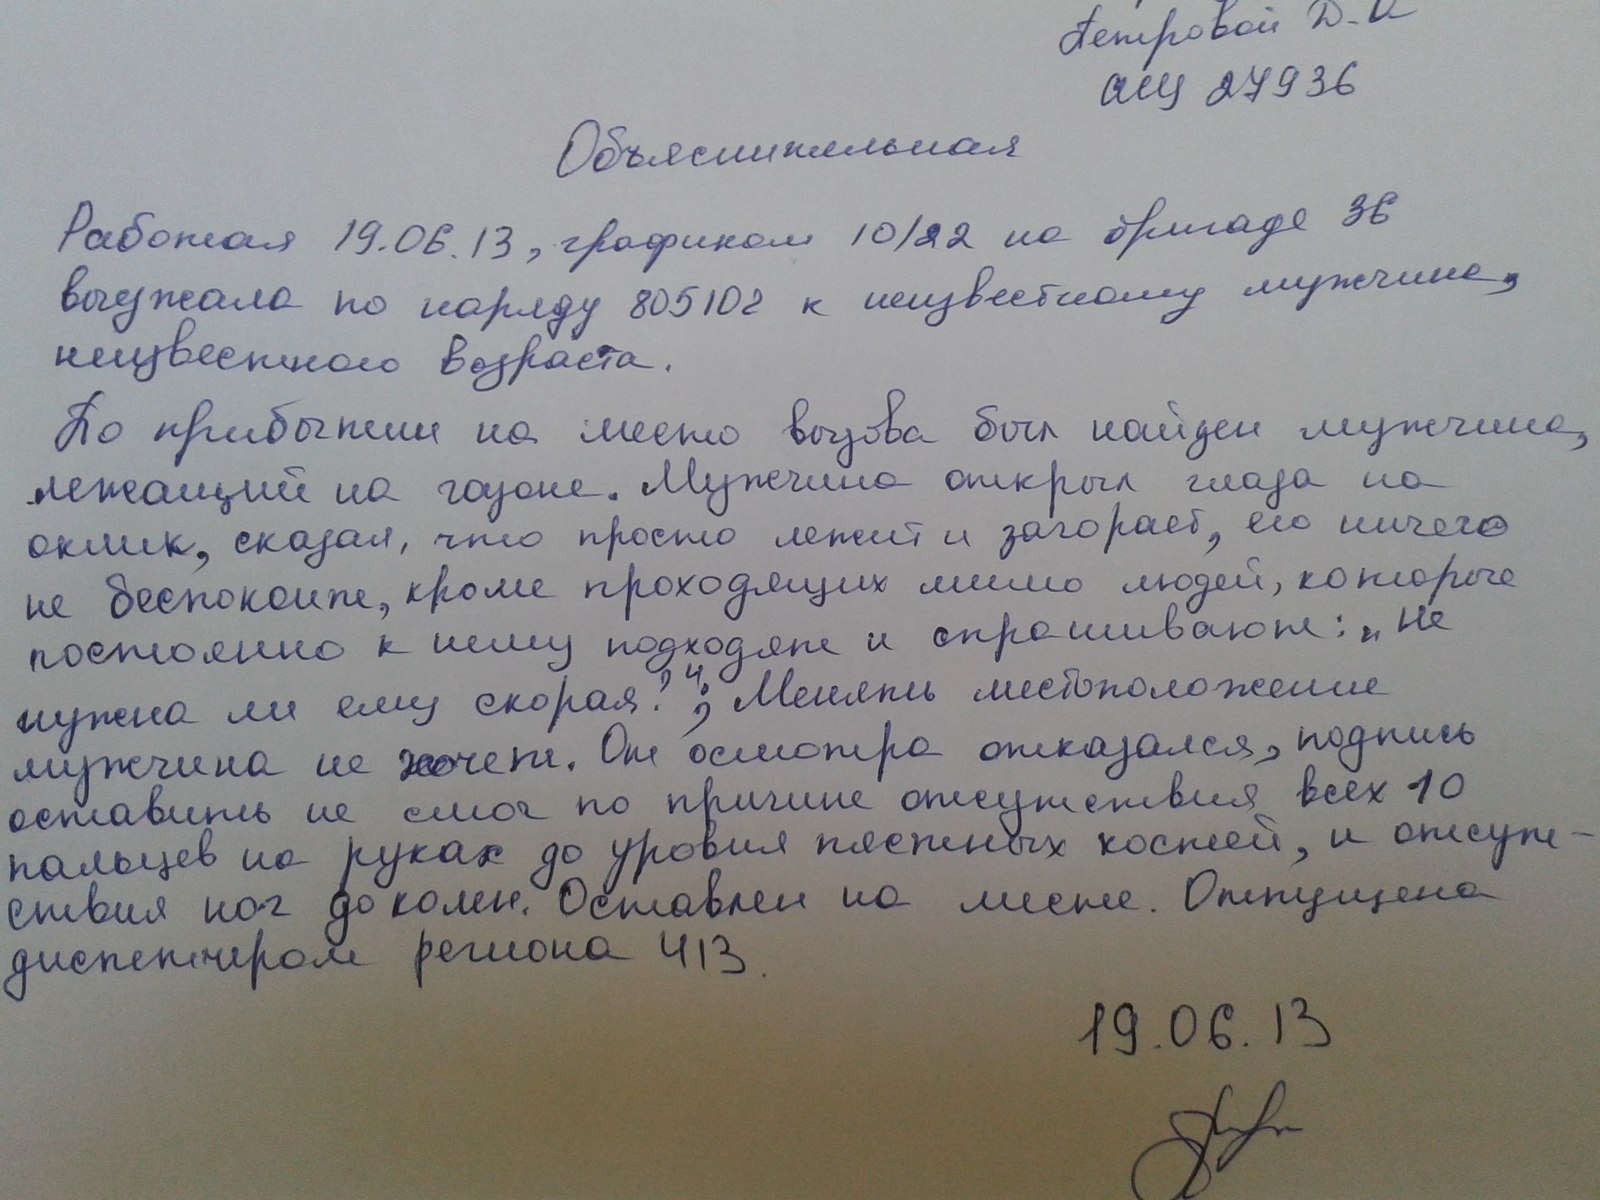 Петровой Д.
ОКЦ 27936
Объяснительная
Работая 19.06.13, графиком 10/22 на бригаде 36
выезжала по наряду 805102 к неизвестному мужчине,
неизвестного возраста.
По прибытии на место вызова был найден мужчина,
лежащий на газоне. Мужчина открыл глаза на
оклик, сказал, что просто лежит и загорает, его ничего
не беспокоит, кроме проходящих мимо людей, которые
постоянно к нему подходят и спрашивают: „Не
нужна ли ему скорая?“; Менять местоположение
мужчина не хочет. От осмотра отказался, подпись
оставить не смог по причине отсутствия всех 10
пальцев на руках до уровня пястных костей, и отсут-
ствия ног до колен. Оставлен на месте. Отпущена
диспетчером региона 413.
19.06.13